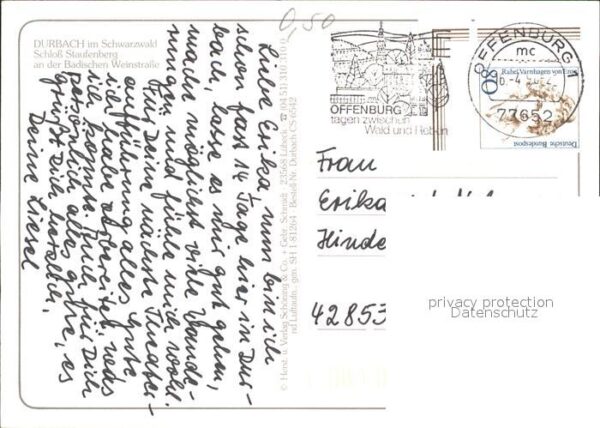 0,50
DURBACH im Schwarzwald
Schloß Staufenberg
an der Badischen Weinstraße
Liebe Erika! nun bin ich
schon fast 14 Tage hier in Dur-
bach, lasse es mir gut gehen,
mache möglichst viele Wande-
rungen und fühle mich wohl.
Für Deine nächste Theater-
aufführung alles Gute
ich habe arbeitet,
ich komme. Auch für Dich
persönlich alles gute, es
grüßt Dich herzlich,
Deine Liesel
© Herst. u. Verlag Schöning & Co. + Gebr. Schmidt
Bestell-Nr. Durbach CS 6042
OFFENBURG
tagen zwischen
Wald und Reben
OFFENBURG 1
mc
77652
80
Rahel Varnhagen von Ense
Deutsche Bundespost
Frau
Erika
Hinde
42853
privacy protection
Datenschutz